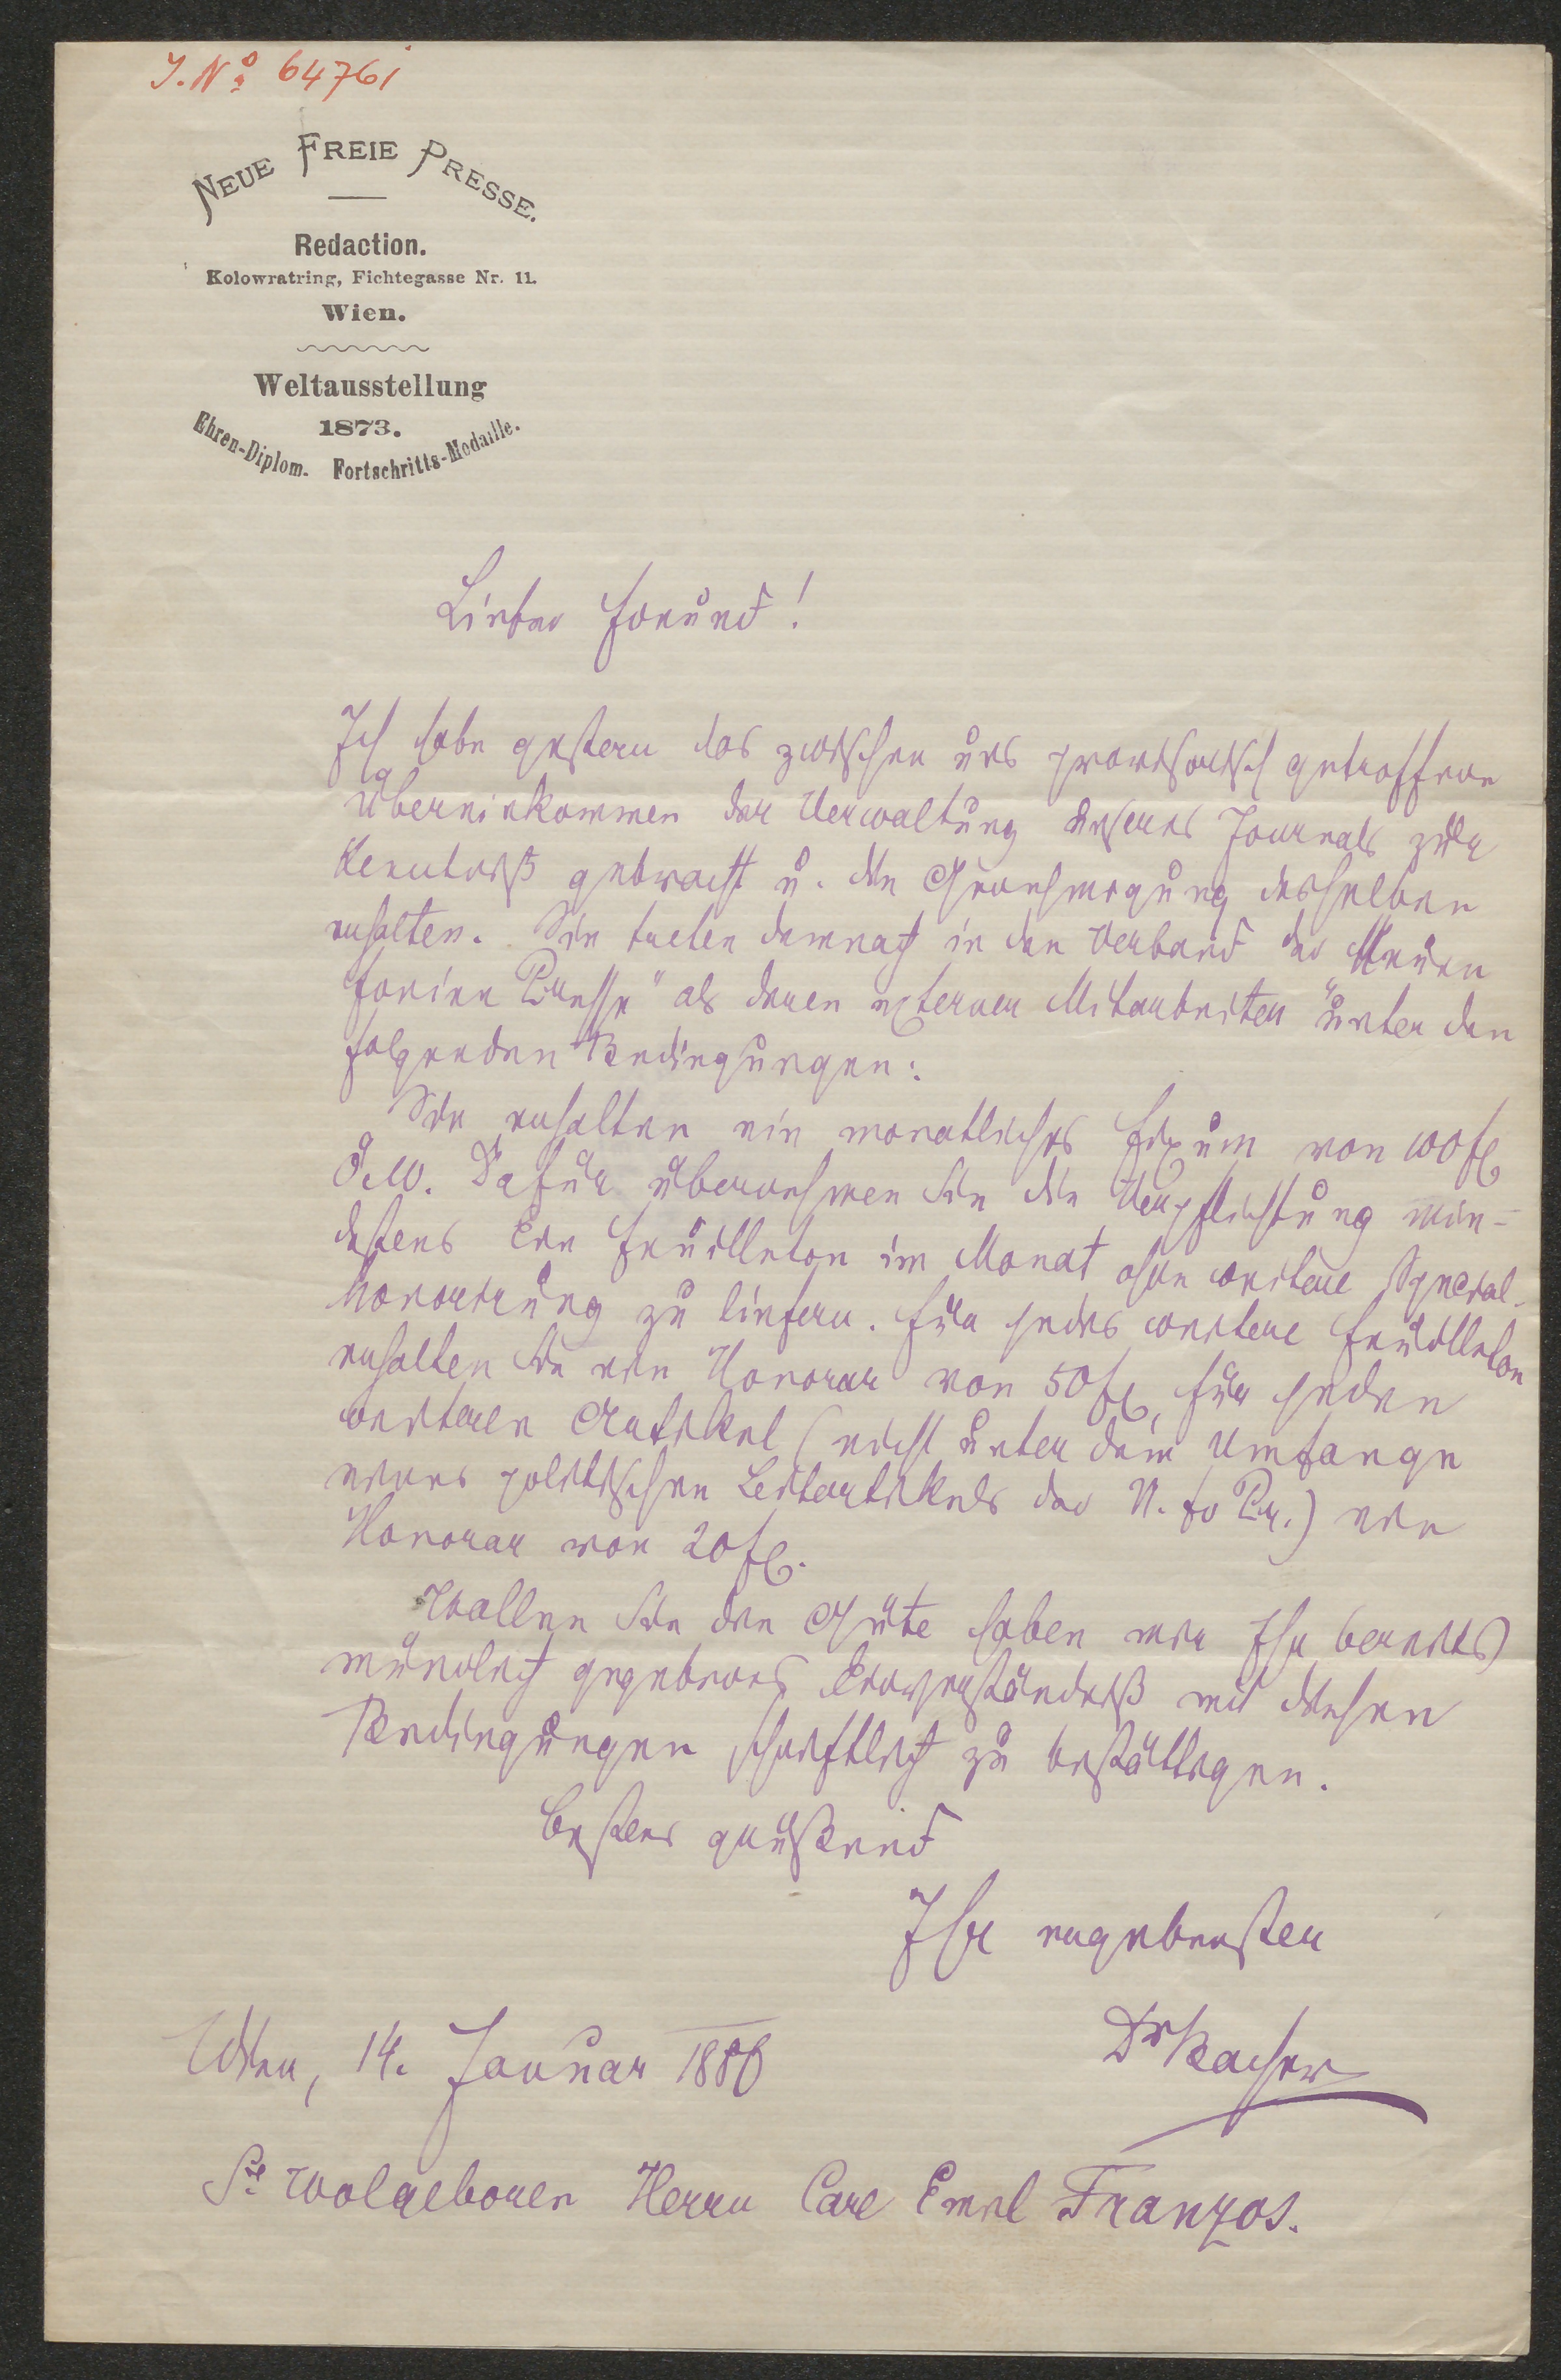 J. No 64761
NEUE FREIE PRESSE.
Redaction.
Kolowratring, Fichtegasse Nr. 11.
Wien.
Weltausstellung
1873.
Ehren-Diplom. Fortschritts-Medaille.
Lieber Freund!
Ich habe gestern das zwischen uns provisorisch getroffene
Übereinkommen der Verwaltung unseres Journals zur
Kenntniß gebracht u. die Genehmigung desselben
erhalten. Sie treten demnach in den Verband der "Neuen
freien Presse" als deren externer Mitarbeiter unter den
folgenden Bedingungen:
Sie erhalten ein monatliches Fixum von 100 fl
Ö.W. Dafür übernehmen Sie die Verpflichtung min-
destens Ein Feuilleton im Monat ohne weitere Special-
honorirung zu liefern. Für jedes weitere Feuilleton
erhalten Sie ein Honorar von 50 fl, für jeden
weiteren Artikel (nicht unter dem Umfange
eines politischen Leitartikels der N. fr Pr.) ein
Honorar von 20 fl.
Wollen Sie die Güte haben mir Ihr bereits
mündlich gegebenes Einverständniß mit diesen
Bedingungen schriftlich zu bestättigen.
Bestens grüßend
Ihr ergebenster
Dr Bacher
Wien, 14. Januar 1886
Sr. Wolgeboren Herrn Carl Emil Franzos.